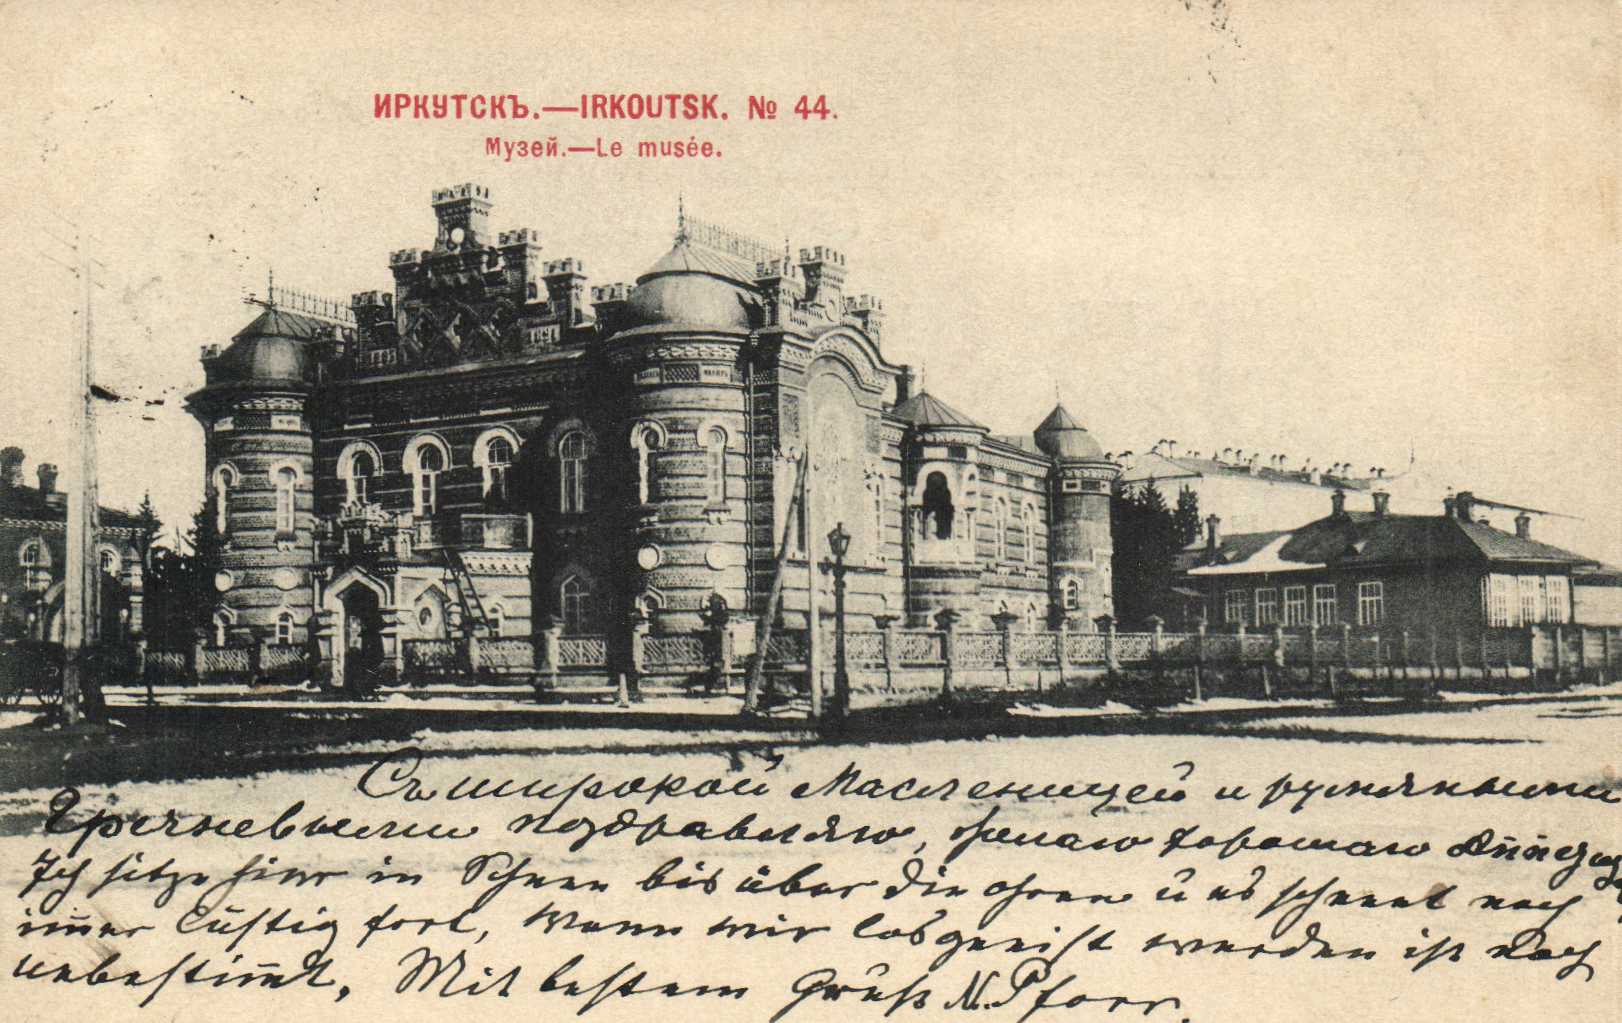 ИРКУТСКЪ.—IRKOUTSK. № 44.
Музей.—Le musée.
Съ широкой Масленицей и румяными
Гречневыми поздравляю, желаю хорошаго
Ich sitze hier in Schnee bis über die Ohren u es schneet noch
im̅er lustig fort, wenn wir losgeeist werden ist noch
unbestim̅t. Mit bestem Gruß N. Pforr.